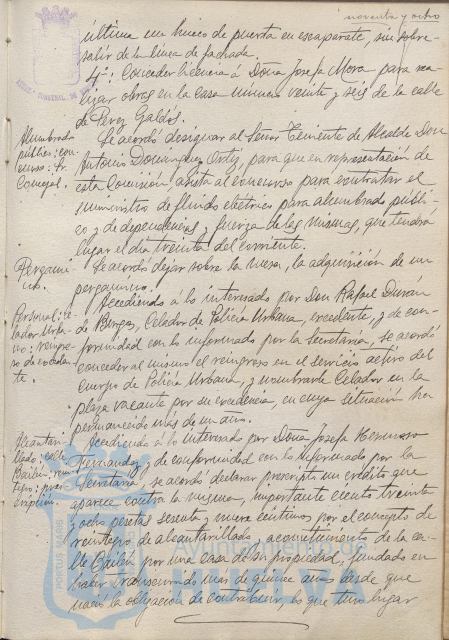 noventa y ocho
última un hueco de puerta en escaparate, sin sobre-
salir de la línea de fachada.
4º, Conceder licencia á Doña Josefa Mora para rea-
lizar obras en la casa número veinte y seis de la calle
de Perez Galdós.
Alumbrado
público: con-
curso: Sr.
Concejal.
Se acordó designar al Señor Teniente de Alcalde Don
Antonio Dominguez Ortiz, para que en representación de
esta Comisión asista al concurso para contratar el
suministro de fluido electrico para alumbrado públi-
co y de dependencias y fuerza de las mismas, que tendrá
lugar el dia treinta del corriente.
Pergami-
no.
Se acordó dejar sobre la mesa, la adquisición de un
pergamino.
Personal: ce-
lador Urba-
no: reingre-
so de exceden-
te.
Accediendo á lo interesado por Don Rafael Durán
de Burgos, Celador de Policía Urbana, excedente, y de con-
formidad con lo informado por la Secretaría, se acordó
conceder al mismo el reingreso en el servicio activo del
Cuerpo de Policía Urbana, y nombrarle Celador en la
plaza vacante por su excedencia, en cuya situación ha
permanecido más de un año.
Alcantari-
llado: calle
Bailén: rein-
tegro: pres-
cripción.
Accediendo á lo interesado por Doña Josefa
Fernandez y de conformidad con lo informado por la
Secretaría, se acordó declarar prescripto un crédito que
aparece contra la misma, importante ciento treinta
y ocho pesetas sesenta y nueve céntimos, por el concepto de
reintegro de alcantarillado, acometimiento de la ca-
lle Bailén por una casa de su propiedad, fundado en
haber transcurrido mas de quince años desde que
nació la obligación de contribuir, lo que tuvo lugar
Ayuntamiento de
HUELVA
PORTUS MARIS